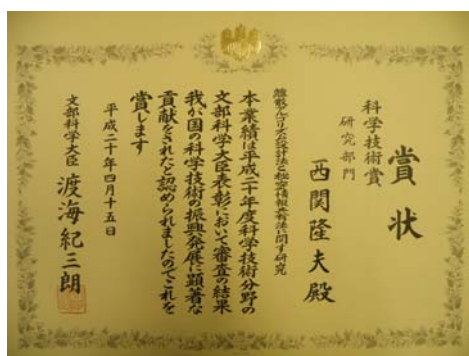 賞状
科学技術賞
研究部門
西関隆夫殿
離散アルゴリズムの設計法と秘密情報共有法に関する研究
本業績は平成二十年度科学技術分野の
文部科学大臣表彰において審査の結果
我が国の科学技術の振興発展に顕著な
貢献をされたと認められましたのでこれを
賞します
平成二十年四月十五日
文部科学大臣 渡海紀三朗